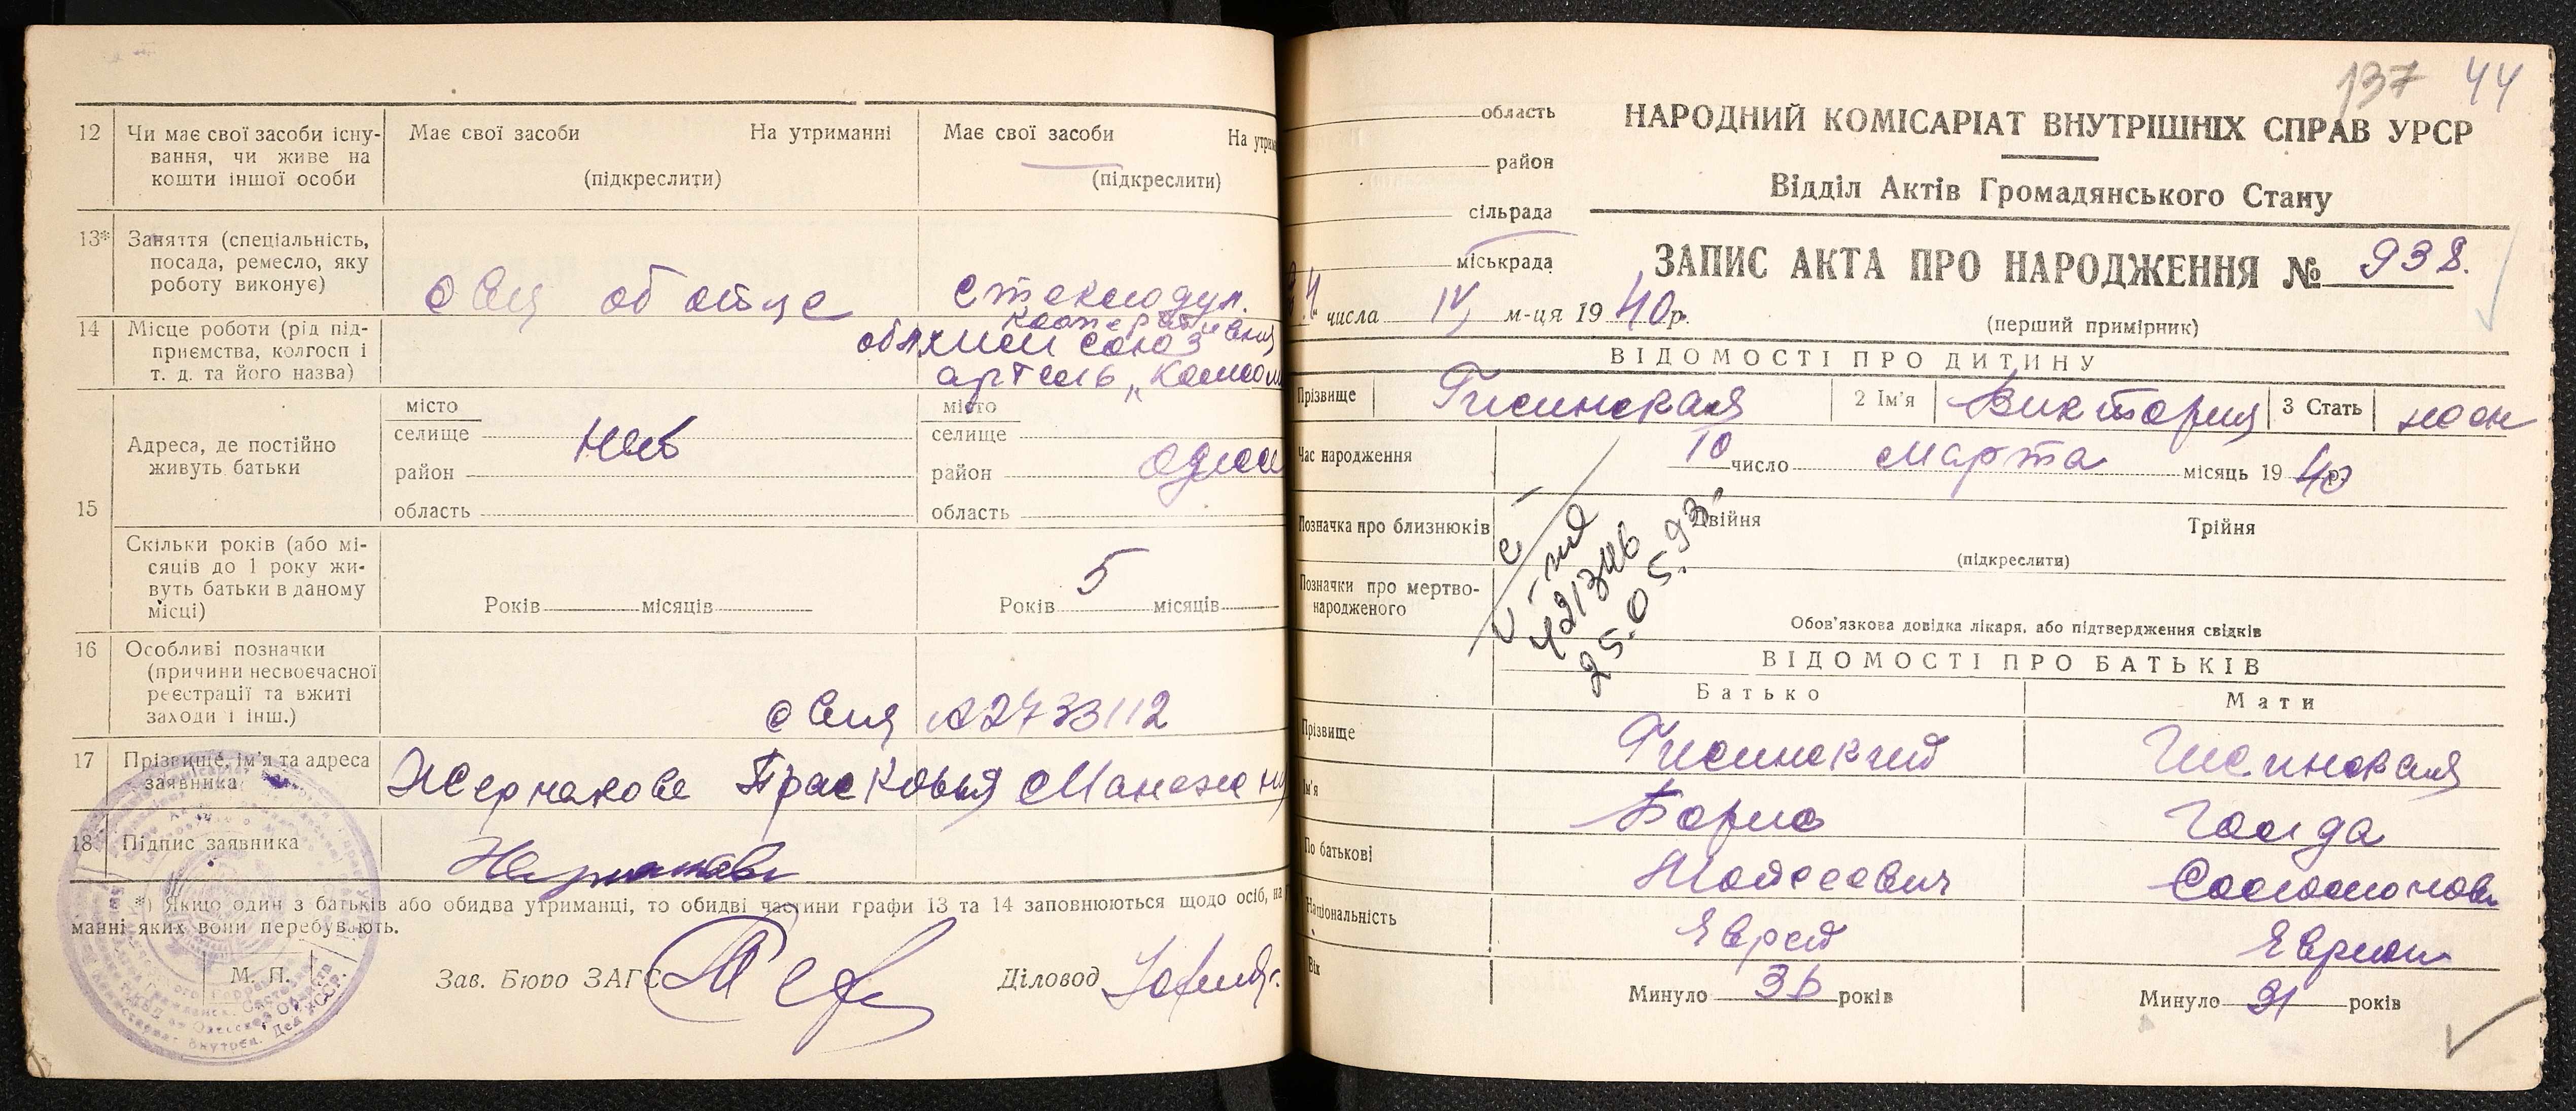 12 Чи має свої засоби існу-
вання, чи живе на
кошти іншої особи
Має свої засоби На утриманні
(підкреслити)
Має свої засоби На утрим
(підкреслити)
13* Заняття (спеціальність,
посада, ремесло, яку
роботу виконує)
14 Місце роботи (рід під-
приємства, колгосп і
т. д. та його назва)
союз
артель „
15 Адреса, де постійно
живуть батьки
місто
селище
район
область
місто
селище
район
область
Скільки років (або мі-
сяців до 1 року жи-
вуть батьки в даному
місці)
Років місяців
Років 5 місяців
16 Особливі позначки
(причини несвоєчасної
реєстрації та вжиті
заходи і інш.)
17 Прізвище, ім'я та адреса
заявника
Прасковья
18 Підпис заявника
*) Якщо один з батьків або обидва утриманці, то обидві частини графи 13 та 14 заповнюються щодо осіб, на
манні яких вони перебувають.
М. П. Зав. Бюро ЗАГС Діловод
137 44
область
район
сільрада
міськрада
НАРОДНИЙ КОМІСАРІАТ ВНУТРІШНІХ СПРАВ УРСР
Відділ Актів Громадянського Стану
ЗАПИС АКТА ПРО НАРОДЖЕННЯ № 938.
числа IV м-ця 1940р.
(перший примірник)
ВІДОМОСТІ ПРО ДИТИНУ
Прізвище Гисинская 2 Ім'я Виктория 3 Стать жен
Час народження 10 число марта місяць 1940 р.
Позначка про близнюків Двійня Трійня
(підкреслити)
25.05.93
Позначки про мертво-
народженого
Обов'язкова довідка лікаря, або підтвердження свідків
ВІДОМОСТІ ПРО БАТЬКІВ
Батько Мати
Прізвище Гисинский Гисинская
Ім'я Борис
По батькові Мойсеевич
Національність Еврей
Вік Минуло 36 років Минуло 31 років